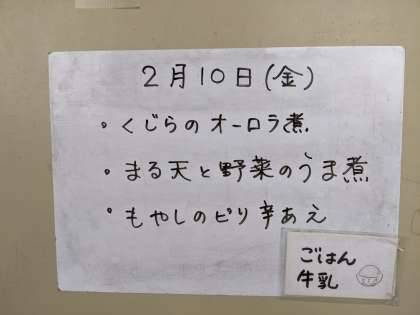 2月10日(金)
・くじらのオーロラ煮
・まる天と野菜のうま煮
・もやしのピリ辛あえ
ごはん
牛乳